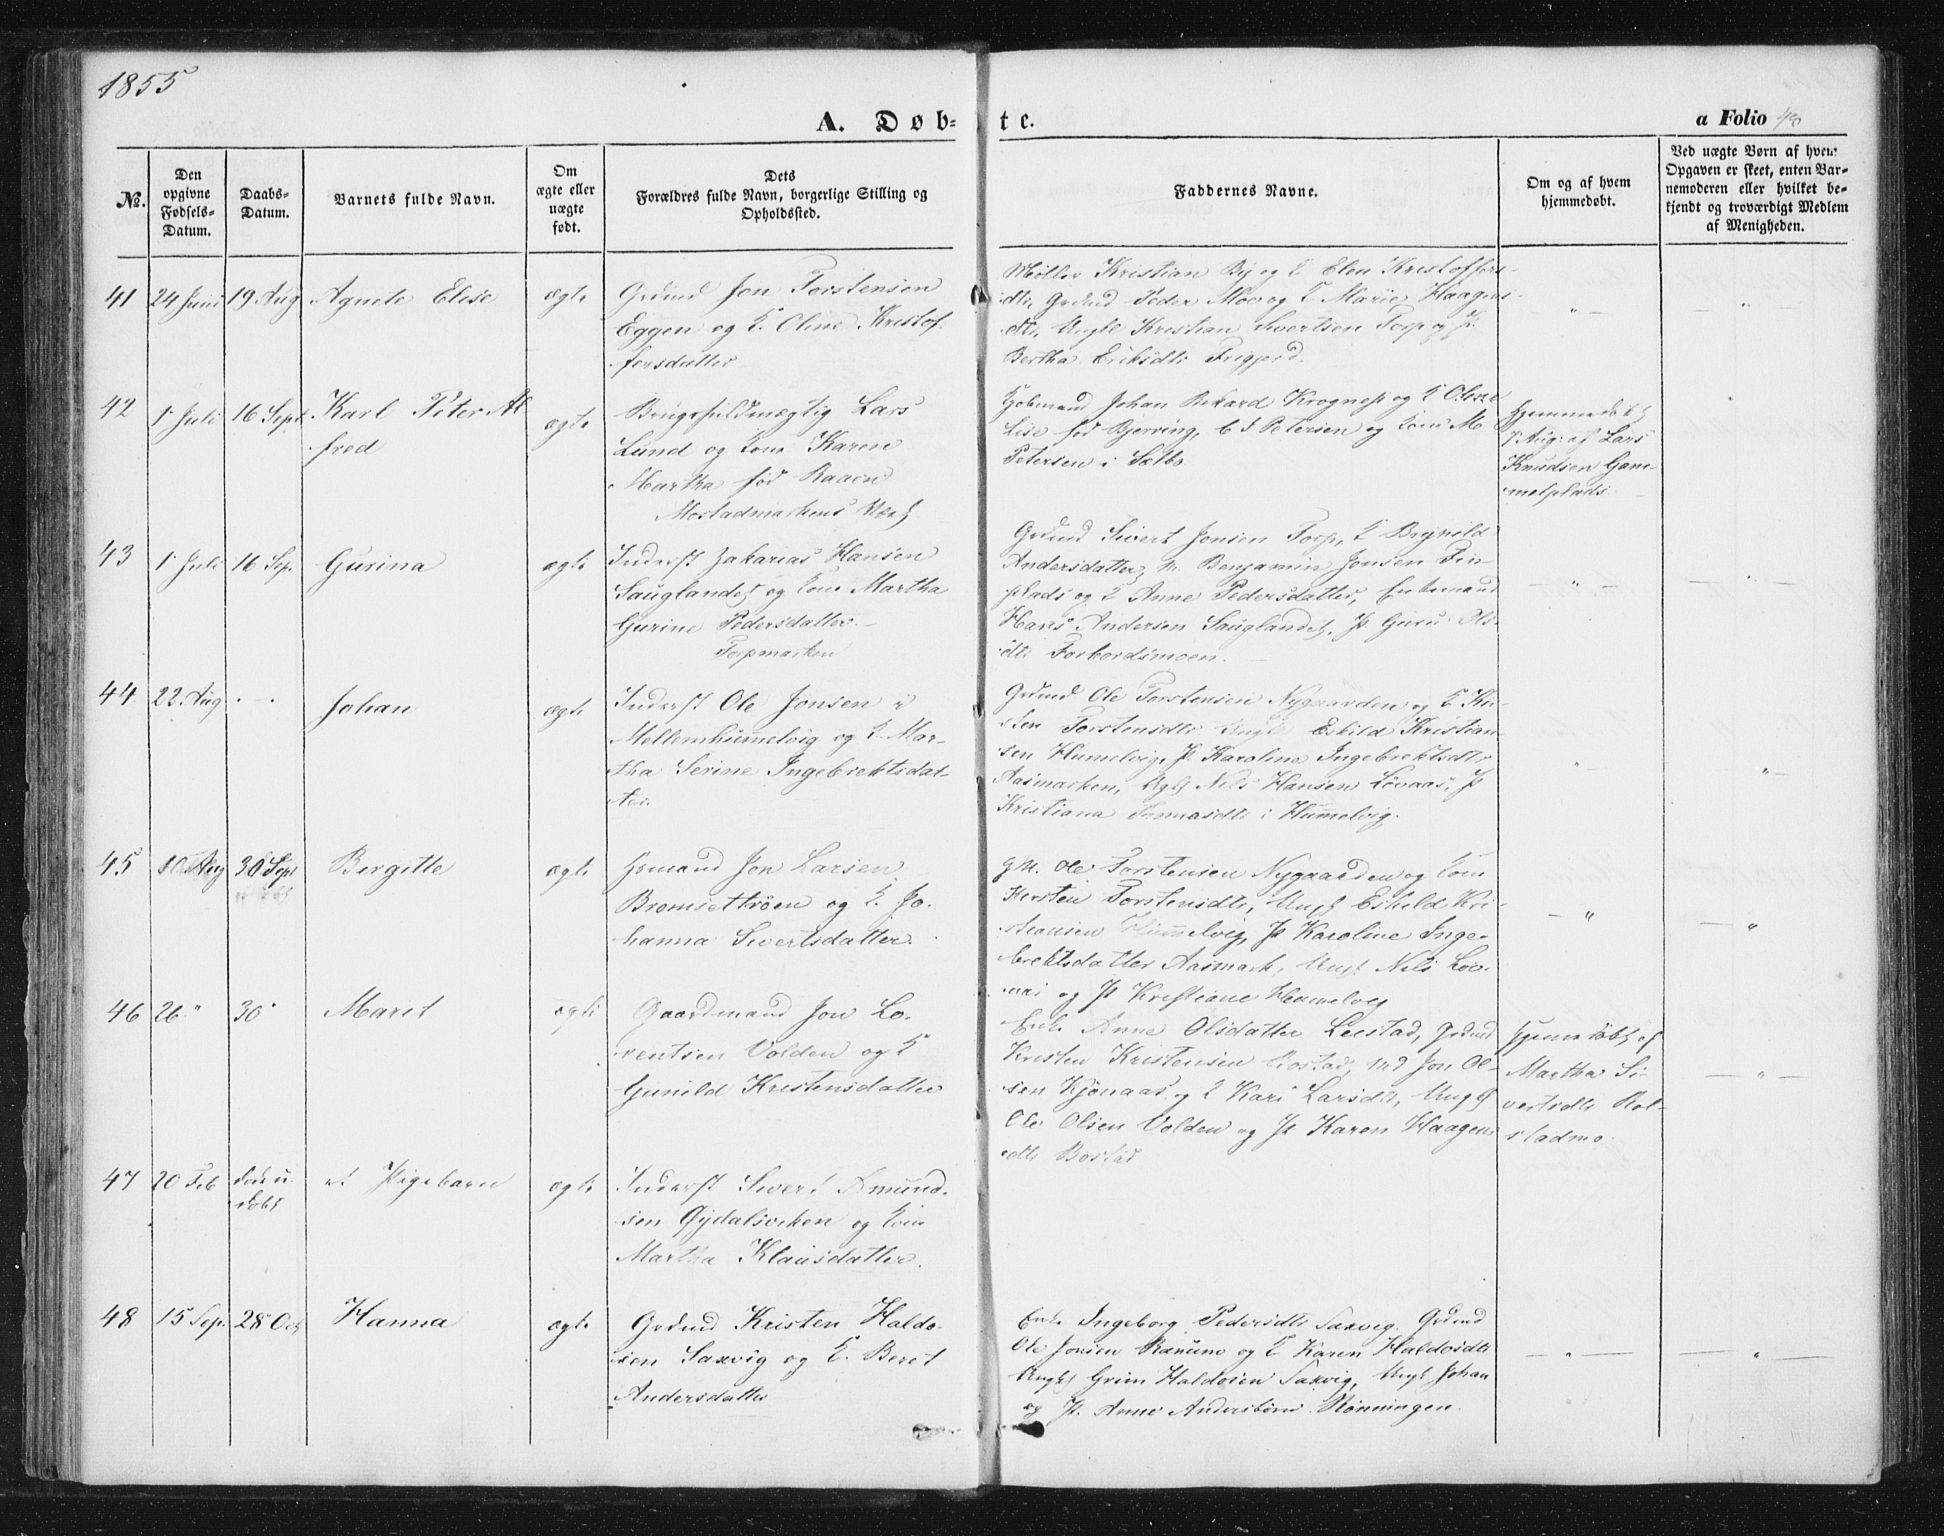 1855
A. Døb=
te.
a Folio 43
№.
Den opgivne Fødsels-Datum.
Daabs-Datum.
Barnets fulde Navn.
Om ægte eller uægte født.
Dets Forældres fulde Navn, borgerlige Stilling og Opholdssted.
Faddernes Navne.
Om og af hvem hjemmedøbt.
Ved uægte Børn af hvem Opgaven er skeet, enten Barnemoderen eller hvilket bekjendt og troværdigt Medlem af Menigheden.
41 24 Juni 19 Aug Agnete Elese ægte
Grdmd Jon Torstensen
Eggen og K. Oline Kristof
fersdatter
Møller Kristian By og K Elen Kristoffers
dtr, Grdmd Peder Moe og K Marie Haagens
dtr, Ungkl Kristian Sivertsen Torp og P.
Bertha Eriksdtr Frigjerd.
42 1 Juli 16 Sept Karl Peter Al
fred
ægte
Brugsfuldmægtig Lars
Lund og Kone Karen
Martha fød Raaen
Mostadmarkens Værk
Kjøbmand Johan Rikard Krognes og K Oline
Lise fød Bjerving, C J Petersen og Kone M
Petersen i Selbo.
Hjemmedøbt
7 Aug: af Lars
Knudsen Gam-
melplads
43 1 Juli 16 Sep. Gurina ægte
Inderst Zakarias Hansen
Sauglandet og Kone Martha
Gurine Pedersdatter.
Torpmarken
Grdmd Sivert Jonsen Torp, K Brynild
Andersdatter, Benjamin Jonsen Fin-
plads og K Anne Pedersdatter, Enkemand
Hans Andersen Sauglandet, P. Guru Ols
dtr Forbordsmoen.
44 22 Aug Johan ægte
Inderst Ole Jonsen i
Mellemhumelvig og K. Mar-
tha Serine Ingebrektsdat-
ter.
Grdmd Ole Torstensen Nygaarden og K Kir-
sten Torstensdtr Ungkl Eskild Kristian
sen Humelvig, P Karoline Ingebrektsdtr
Aasmarken, Ugk Nils Hansen Løvaas, P
Kristiana Tomasdtr i Humelvig.
45 10 Aug 30 Sept Bergitte ægte
Hsmand Jon Larsen
Bromsettrøen og K. Jo-
hanna Sivertsdatter.
gM. Ole Torstensen Nygaarden og Kone
Kersten Torstensdtr, Ungk Eskeld Kri-
stiansen Humelvig, P Karoline Inge-
brektsdatter Aasmark, Ungk Nils Løv-
aas og P Kristiane Humelvig
46 26 " 30 " Marit ægte
Gaardmand Jon Lo-
rentsen Volden og K
Gunild Kristensdatter
Enke Anne Olsdatter Leestad, Grdmd
Kristen Kristensen Rostad, Jon Ol-
sen Kjønaas og K Kari Larsdtr, Ungk
Ole Olsen Volden og P Karen Haagens
dtr Bostad
Hjemmedøbt af
Martha Si-
vertsdtr Rol-
stadmo.
47 20 Feb døde u-
døbt
et Pigebarn ægte
Inderst Sivert Amund-
sen Gydalsviken og Kone
Martha Klausdatter.
48 15 Sep. 28 Oct Hanna ægte
Grdmd Kristen Haldo-
sen Saxvig og K. Beret
Andersdatter
Enke Ingeborg Pedersdtr Saxvig, Grdmd
Ole Jonsen Ramno og K Karen Haldosdtr
Ungkl Grim Haldosen Saxvig, Ungk Johan
og P. Anne Andersbørn Rønningen.